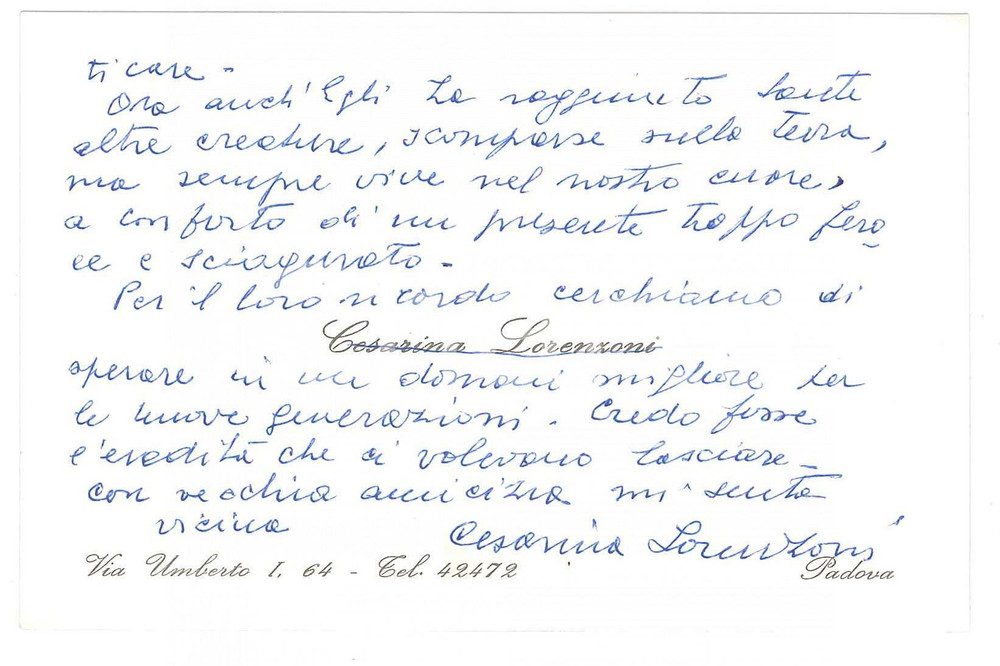 ticare -
Ora anch'Egli ha raggiunto tante
altre creature, scomparse sulla terra,
ma sempre vive nel nostro cuore,
a conforto di un presente troppo fero
ce e sciagurato -
Per il loro ricordo cerchiamo di
Cesarina Lorenzoni
sperare in un domani migliore per
le nuove generazioni. Credo fosse
l'eredità che ci volevano lasciare -
Con vecchia amicizia mi senta
vicina
Cesarina Lorenzoni
Via Umberto I, 64 - Tel. 42472
Padova